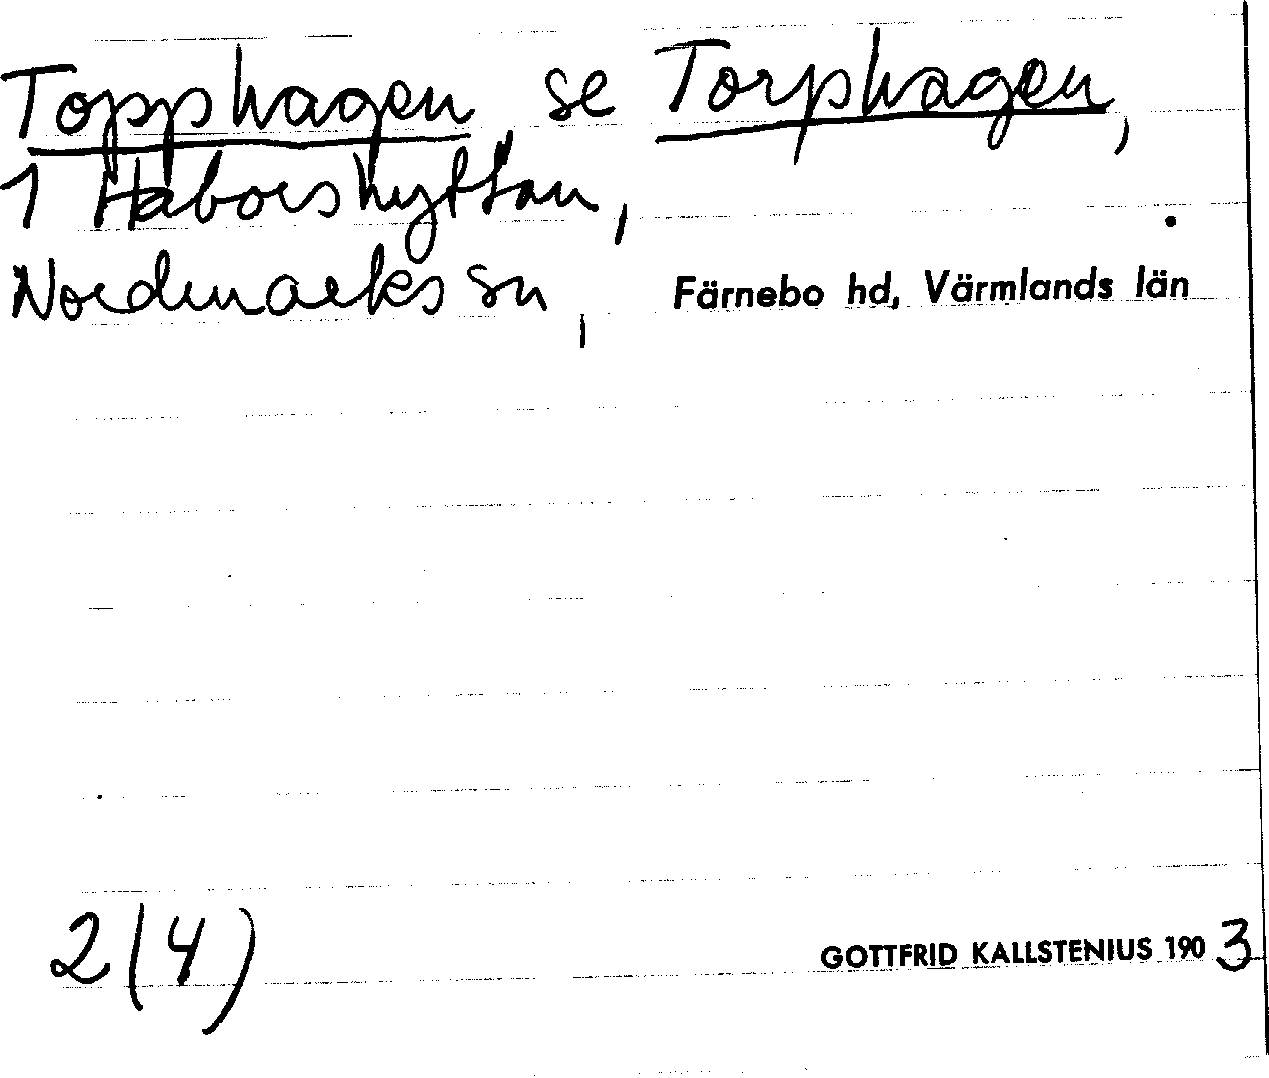 Topphagen, se Torphagen,
1 Haborshyttan,
Nordmarks sn, Färnebo hd, Värmlands län
2(4)
GOTTFRID KALLSTENIUS 1903